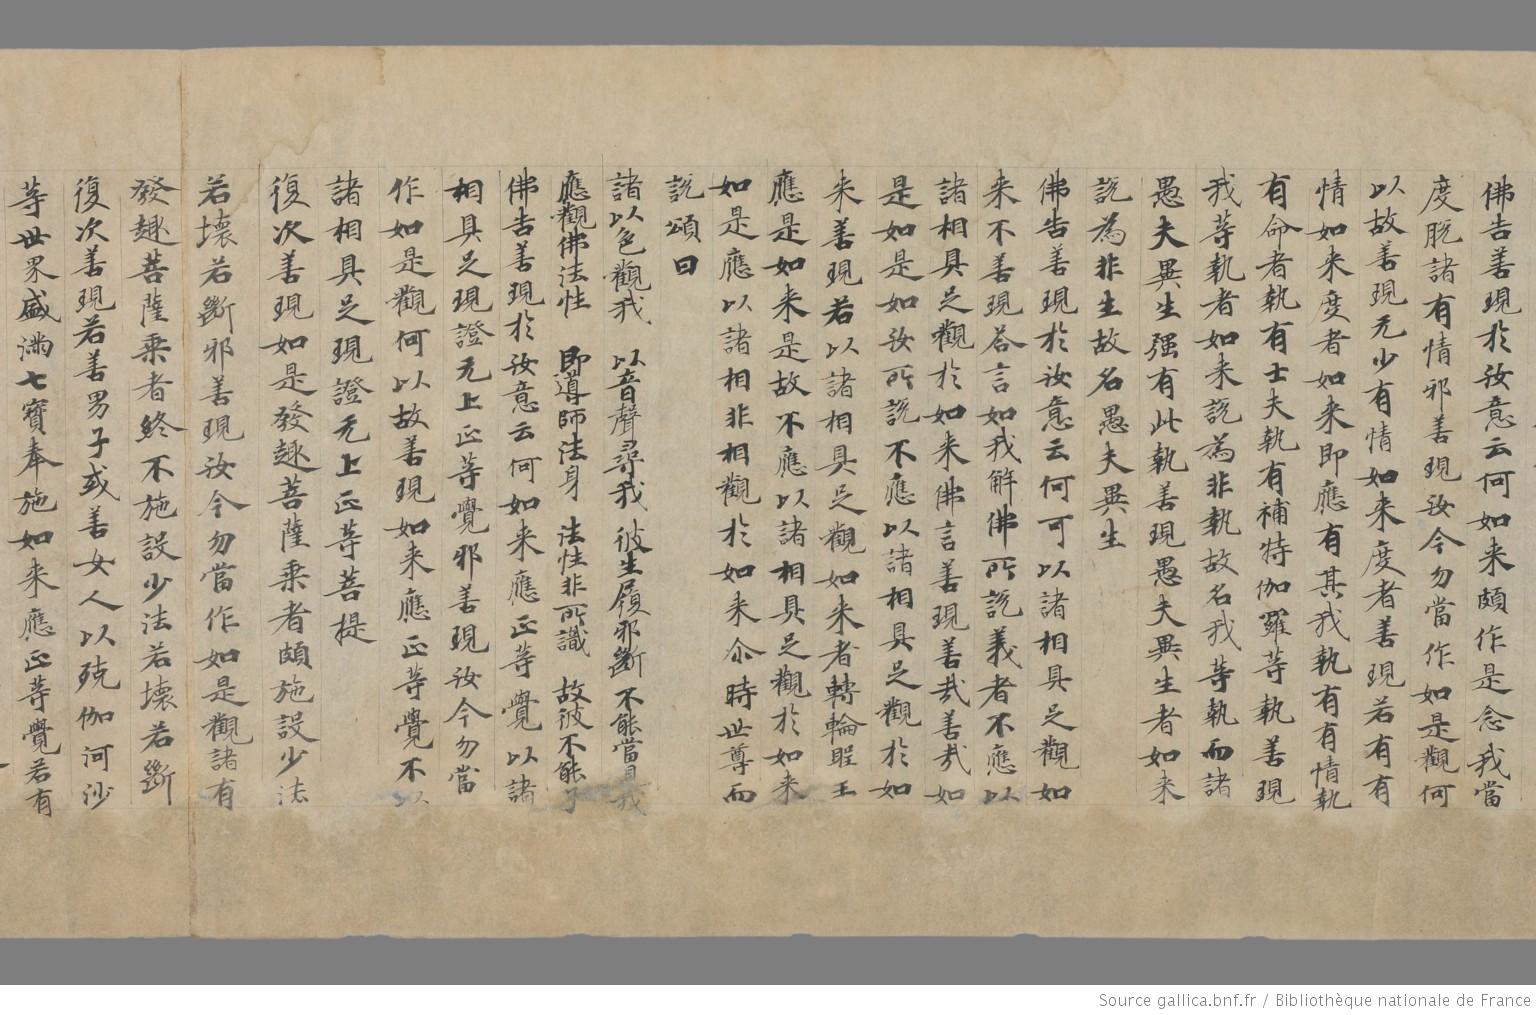 佛告善現於汝意云何如來頗作是念我當
度脫諸有情邪善現汝今勿當作如是觀何
以故善現无少有情如來度者善現若有有
情如來度者如來即應有其我執有有情執
有命者執有士夫執有補特伽羅等執善現
我等執者如來說為非執故名我等執而諸
愚夫異生强有此執善現愚夫異生者如來
說為非生故名愚夫異生
佛告善現於汝意云何可以諸相具足觀如
来不善現答言如我解佛所說義者不應以
諸相具足觀於如来佛言善現善哉善哉如
是如是如汝所說不應以諸相具足觀於如
来善現若以諸相具足觀如来者轉輪聖王
應是如来是故不應以諸相具足觀於如来
如是應以諸相非相觀於如来尒時世尊而
說頌曰
諸以色觀我 以音聲尋我 彼生履邪斷 不能當見我
應觀佛法性 即導師法身 法性非所識 故彼不能了
佛告善現於汝意云何如来應正等覺以諸
相具足現證无上正等覺邪善現汝今勿當
作如是觀何以故善現如来應正等覺不以
諸相具足現證无上正等菩提
復次善現如是發趣菩薩乘者頗施設少法
若壞若斷邪善現汝今勿當作如是觀諸有
發趣菩薩乘者終不施設少法若壞若斷
復次善現若善男子或善女人以殑伽河沙
等世界盛滿七寶奉施如来應正等覺若有
Source gallica.bnf.fr / Bibliothèque nationale de France